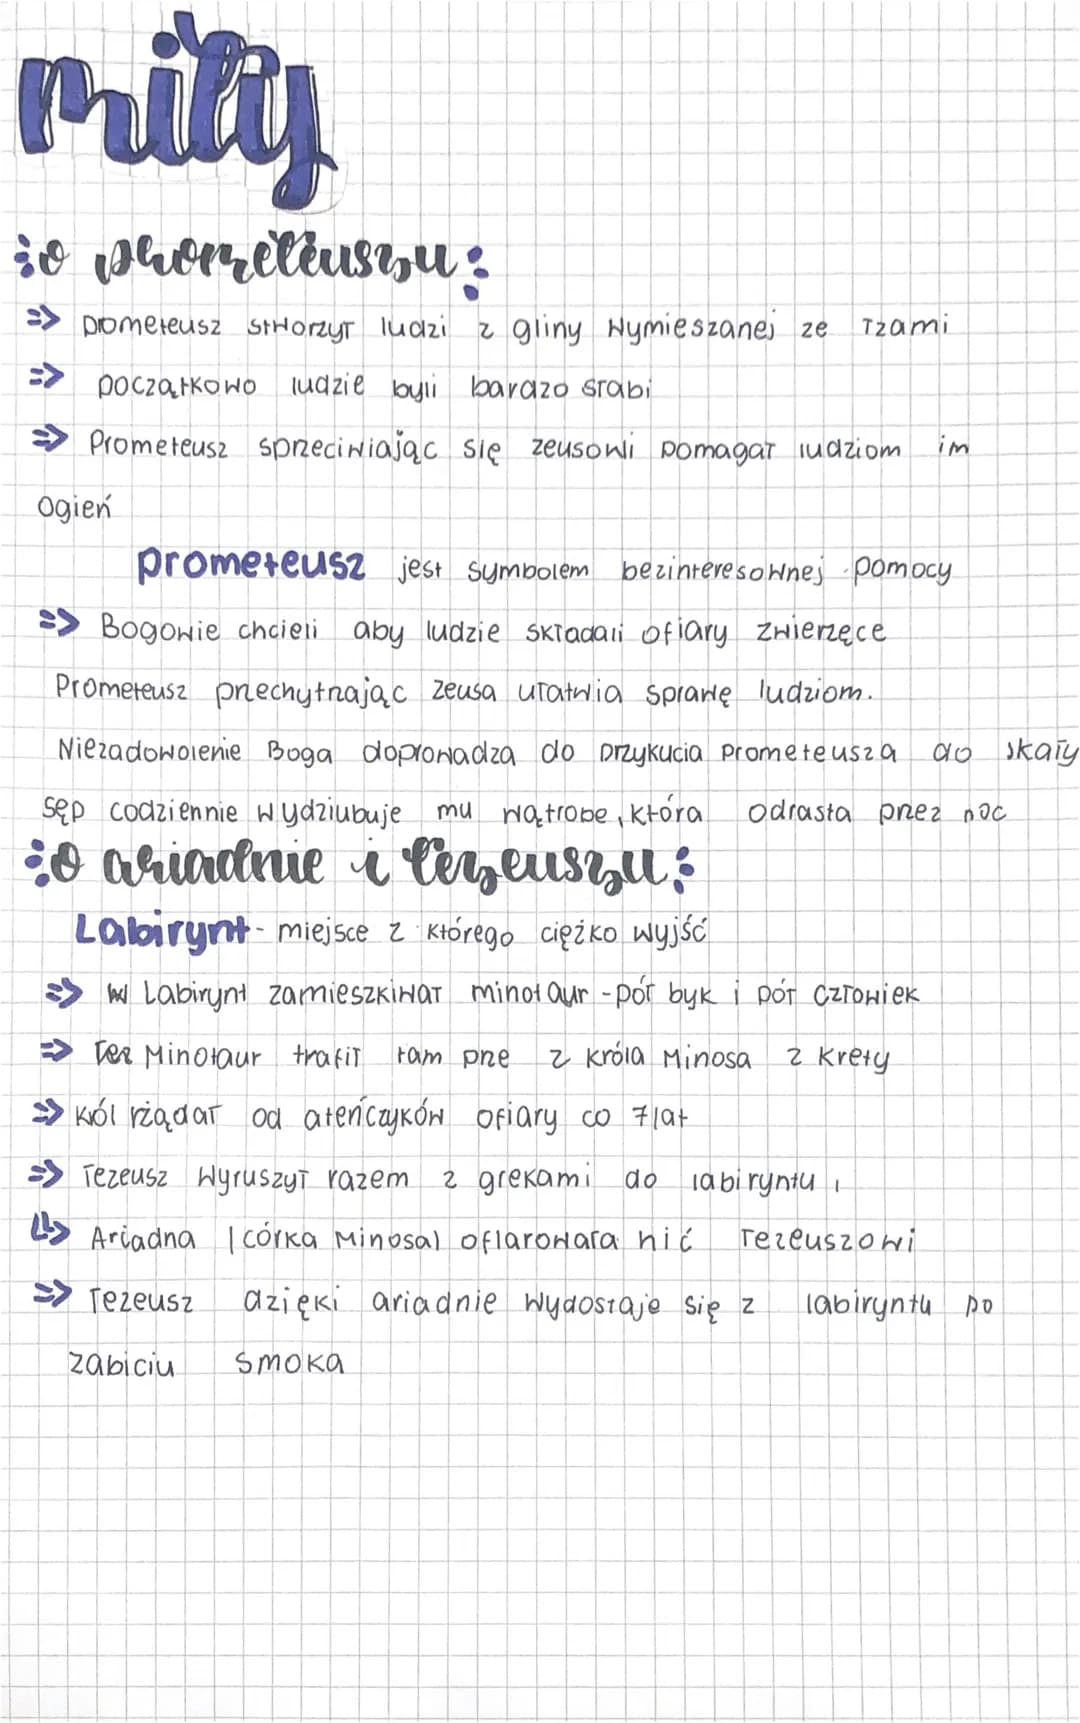 mity
o prometeuszu:
=> prometeusz stworzył ludzi z gliny wymieszanej ze łzami
=> początkowo ludzie byli bardzo słabi
=> Prometeusz sprzeciwiając się zeusowi pomagał ludziom im
ogień
prometeusz jest symbolem bezinteresownej pomocy
=> Bogowie chcieli aby ludzie składali ofiary zwierzęce
Prometeusz przechytrzając zeusa ułatwia sprawę ludziom.
Niezadowolenie Boga doprowadza do przykucia prometeusza do skały
sęp codziennie wydziubuje mu wątrobe, która odrasta przez noc
o ariadnie i tezeuszu:
Labirynt - miejsce z którego ciężko wyjść
=> w Labirynt zamieszkiwał minotaur - pół byk i pół człowiek
=> Tez Minotaur trafił tam prze z króla Minosa z krety
=> król rżądał od ateńczyków ofiary co 7 lat
=> Tezeusz wyruszył razem z grekami do labiryntu
=> Ariadna (córka Minosa) ofiarowała nić Tezeuszowi
=> Tezeusz dzięki ariadnie wydostaje się z labiryntu po
zabiciu smoka